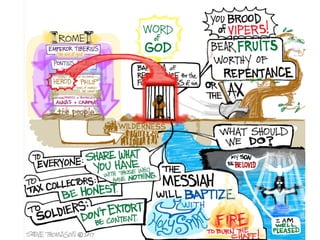 ROME
EMPEROR TIBERIUS
PONTIUS
HEROD
PHILIP
ANNAS + CAIAPHAS
the people
WORD
of
GOD
YOU BROOD
of VIPERS!
BEAR FRUITS
WORTHY OF
REPENTANCE
OR
THE AX
for the
WILDERNESS
WHAT SHOULD
WE DO?
TO EVERYONE:
SHARE WHAT
YOU HAVE
WITH THOSE WHO
HAVE NOTHING
TO TAX COLLECTORS:
BE HONEST
TO SOLDIERS:
DON'T EXTORT
BE CONTENT
THE
MESSIAH
WILL BAPTIZE
WITH
HOLY SPIRIT
FIRE
TO BURN THE
CHAFF!
MY SON
THE BELOVED
I AM
WELL
PLEASED
STEVE THOMASON © 2017